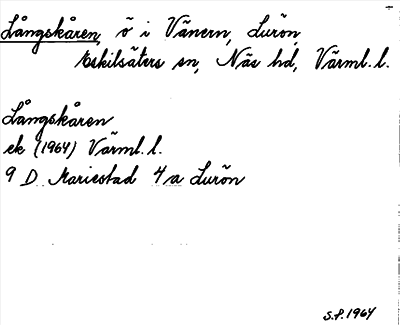 Långskåren, ö i Vänern, Lurön,
Eskilsäters sn, Näs hd, Värml. l.
Långskåren
ek (1964) Värml. l.
9 D Mariestad 4 a Lurön
S.P. 1964